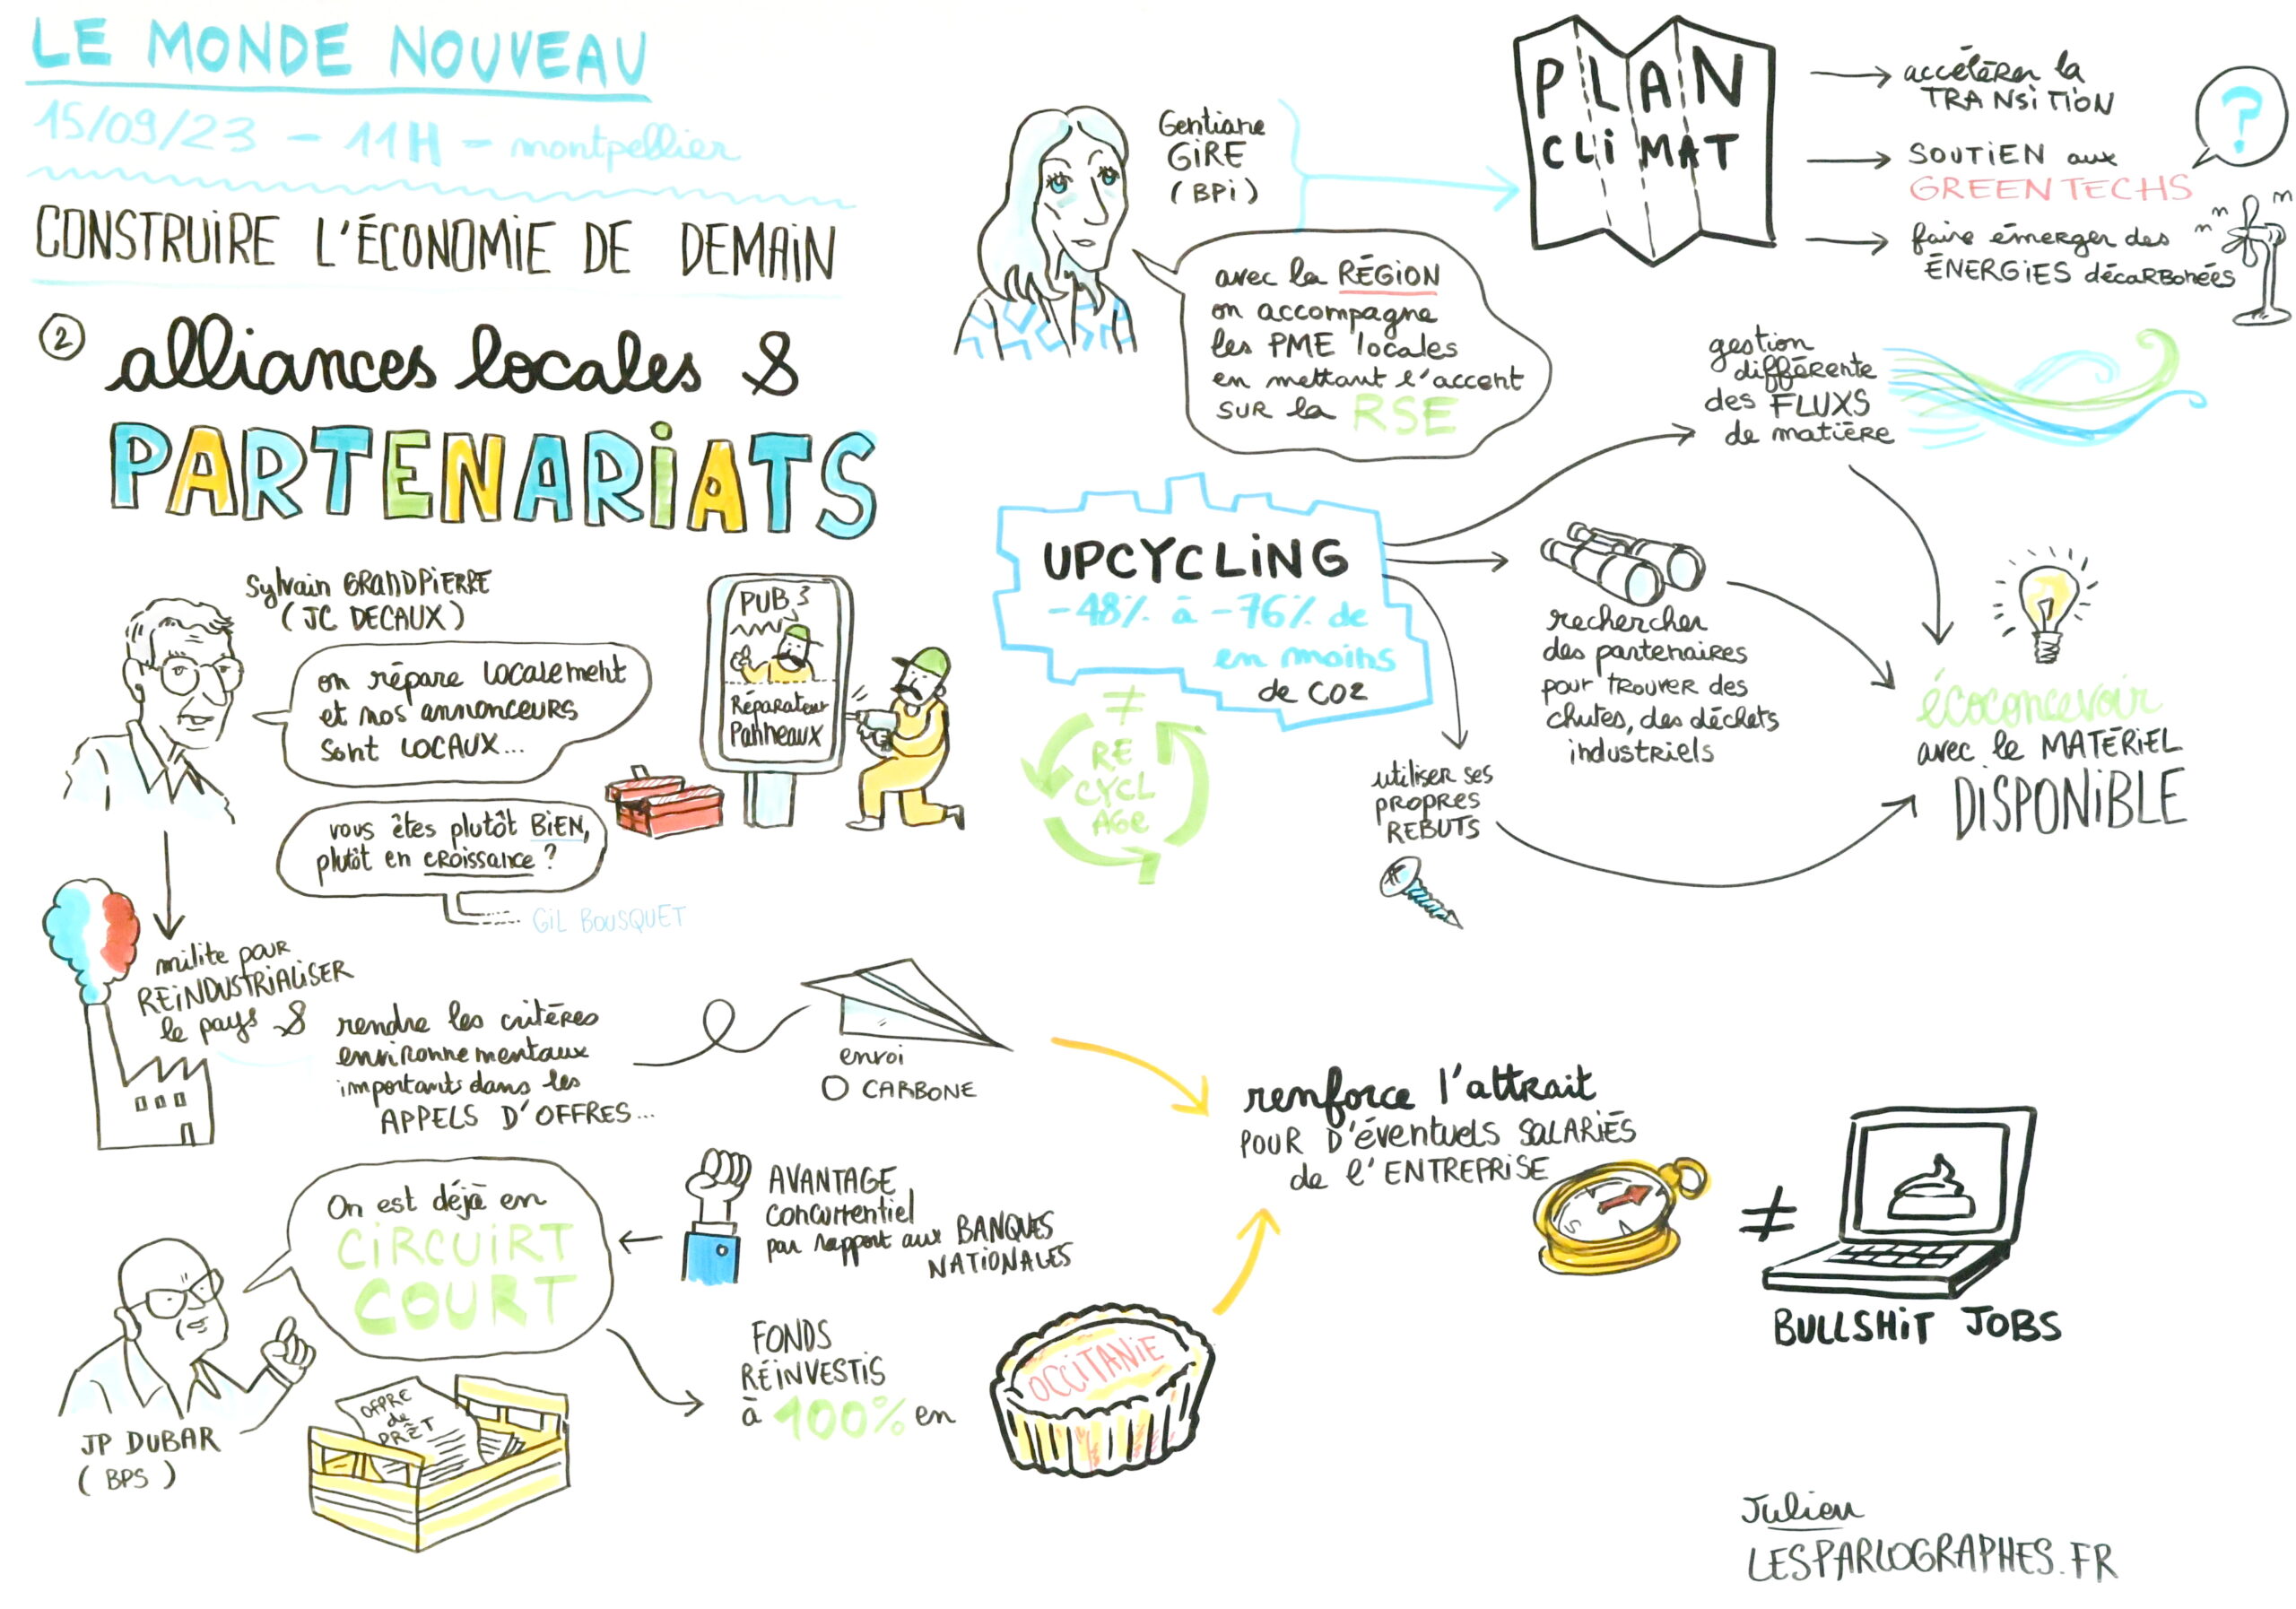 LE MONDE NOUVEAU
15/09/23 - 11H - montpellier
CONSTRUIRE L'ÉCONOMIE DE DEMAIN
② alliances locales &
PARTENARIATS
Sylvain GRANDPIERRE
(JC DECAUX)
on répare LOCALEMENT
et nos annonceurs
sont LOCAUX...
PUB
Réparateur
Panneaux
vous êtes plutôt BIEN,
plutôt en croissance ?
GIL BOUSQUET
milite pour
RÉINDUSTRIALISER
le pays &
rendre les critères
environnementaux
importants dans les
APPELS D'OFFRES...
envoi
0 CARBONE
On est déjà en
CIRCUIRT
COURT
JP DUBAR
(BPS)
OFFRE
de
PRÊT
AVANTAGE
concurrentiel
par rapport aux BANQUES
NATIONALES
FONDS
RÉINVESTIS
à 100% en
OCCITANIE
Gentiane
GIRE
(BPi)
avec la RÉGION
on accompagne
les PME locales
en mettant l'accent
SUR la RSE
PLAN
CLIMAT
accélérer la
TRANSITION
SOUTIEN aux
GREENTECHS
?
faire émerger des
ÉNERGIES décarbonées
UPCYCLING
-48% à -76% de
en moins
de CO2
≠
RE
CYCL
AGE
gestion
différente
des FLUXS
de matière
rechercher
des partenaires
pour trouver des
chutes, des déchets
industriels
utiliser ses
PROPRES
REBUTS
écoconcevoir
avec le MATÉRIEL
DISPONIBLE
renforce l'attrait
POUR D'éventuels SALARIÉS
de l'ENTREPRISE
≠
BULLSHIT JOBS
Julien
LESPARLOGRAPHES.FR